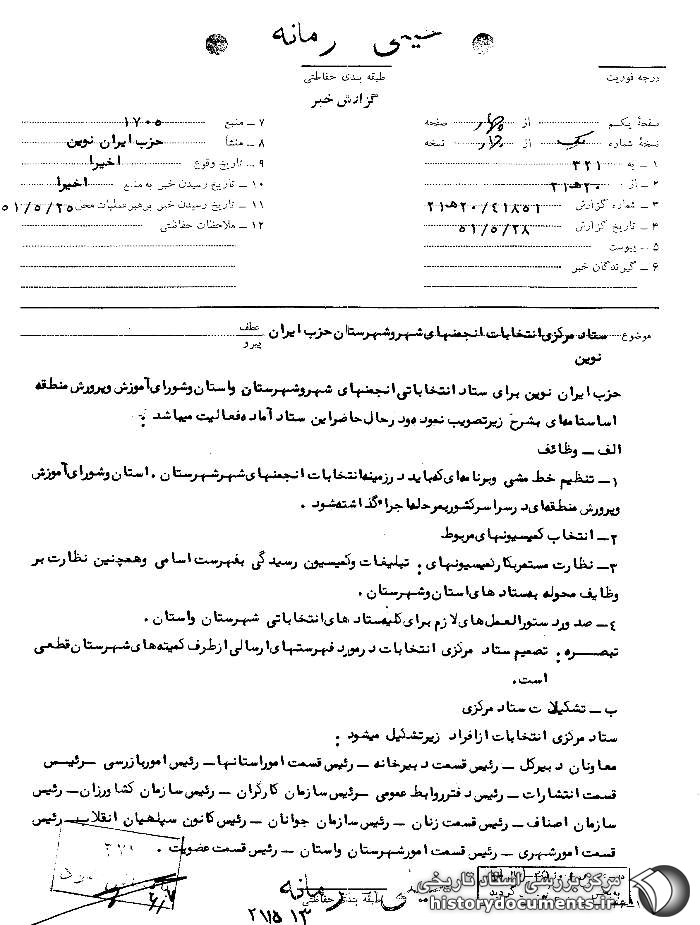 خیلی محرمانه
طبقه بندی حفاظتی
درجه فوریت
گزارش خبر
صفحهٔ یکم از چهار صفحه
نسخهٔ شماره یک از چهار نسخه
۱ – به ۳۲۱
۲ – از ۲۰ه۲۱
۳ – شماره گزارش ۲۰/۴۱۸۵۱ه۲۱
۴ – تاریخ گزارش ۵۱/۵/۲۸
۵ – پیوست
۶ – گیرندگان خبر
۷ – منبع ۱۷۰۵
۸ – منشأ حزب ایران نوین
۹ – تاریخ وقوع اخیرا
۱۰ – تاریخ رسیدن خبر به منبع اخیرا
۱۱ – تاریخ رسیدن خبر برهبر عملیات محلی ۵۱/۵/۲۵
۱۲ – ملاحظات حفاظتی
موضوع ستاد مرکزی انتخابات انجمنهای شهر و شهرستان حزب ایران
نوین
عطف
پیرو
حزب ایران نوین برای ستاد انتخاباتی انجمنهای شهر و شهرستان واستان وشورای آموزش وپرورش منطقه
اساسنامه‌ای بشرح زیر تصویب نموده و در حال حاضر این ستاد آماده فعالیت میباشد :
الف – وظائف
۱– تنظیم خط مشی وبرنامه‌ای که باید در زمینه انتخابات انجمنهای شهر شهرستان ، استان وشورای آموزش
وپرورش منطقه‌ای در سراسر کشور بمرحله اجرا گذاشته شود .
۲– انتخاب کمیسیونهای مربوط
۳– نظارت مستمر بکار کمیسیونهای : تبلیغات وکمیسیون رسیدگی بفهرست اسامی وهمچنین نظارت بر
وظایف محوله به ستاد های استان وشهرستان .
۴– صدور دستورالعمل‌های لازم برای کلیه ستاد های انتخاباتی شهرستان واستان .
تبصره : تصمیم ستاد مرکزی انتخابات در مورد فهرستهای ارسالی از طرف کمیته‌های شهرستان قطعی
است .
ب – تشکیلات ستاد مرکزی
ستاد مرکزی انتخابات از افراد زیر تشکیل میشود :
معاونان دبیرکل – رئیس قسمت دبیرخانه – رئیس قسمت امور استانها – رئیس امور بازرسی – رئیس
قسمت انتشارات – رئیس دفتر روابط عمومی – رئیس سازمان کارگران – رئیس سازمان کشاورزان – رئیس
سازمان اصناف – رئیس قسمت زنان – رئیس سازمان جوانان – رئیس کانون سپاهیان انقلاب – رئیس
قسمت امور شهری – رئیس قسمت امور شهرستان واستان – رئیس قسمت عضویت .
طبقه بندی حفاظتی
مرکز بررسی اسناد تاریخی
historydocuments.ir